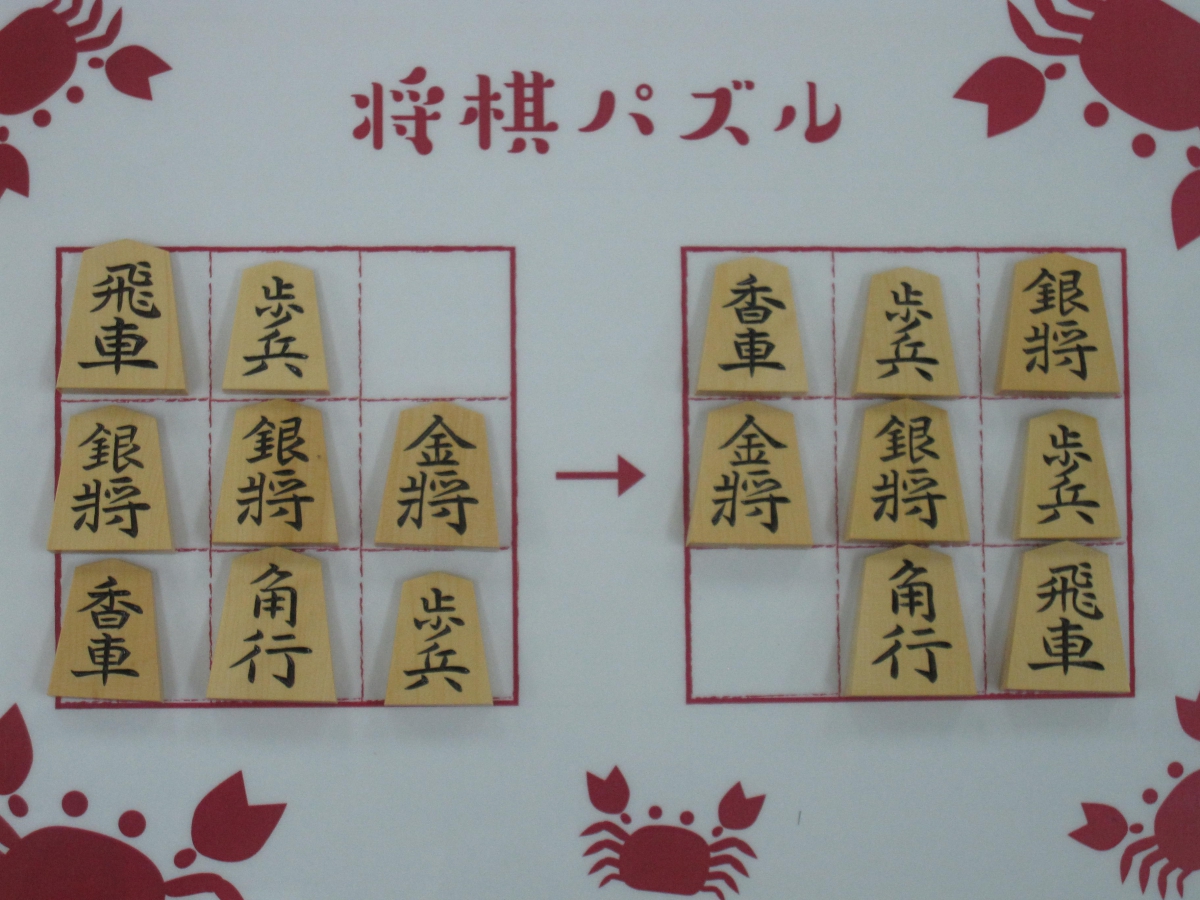 将棋パズル
飛車 歩兵
銀将 銀将 金将
香車 角行 歩兵
香車 歩兵 銀将
金将 銀将 歩兵
角行 飛車